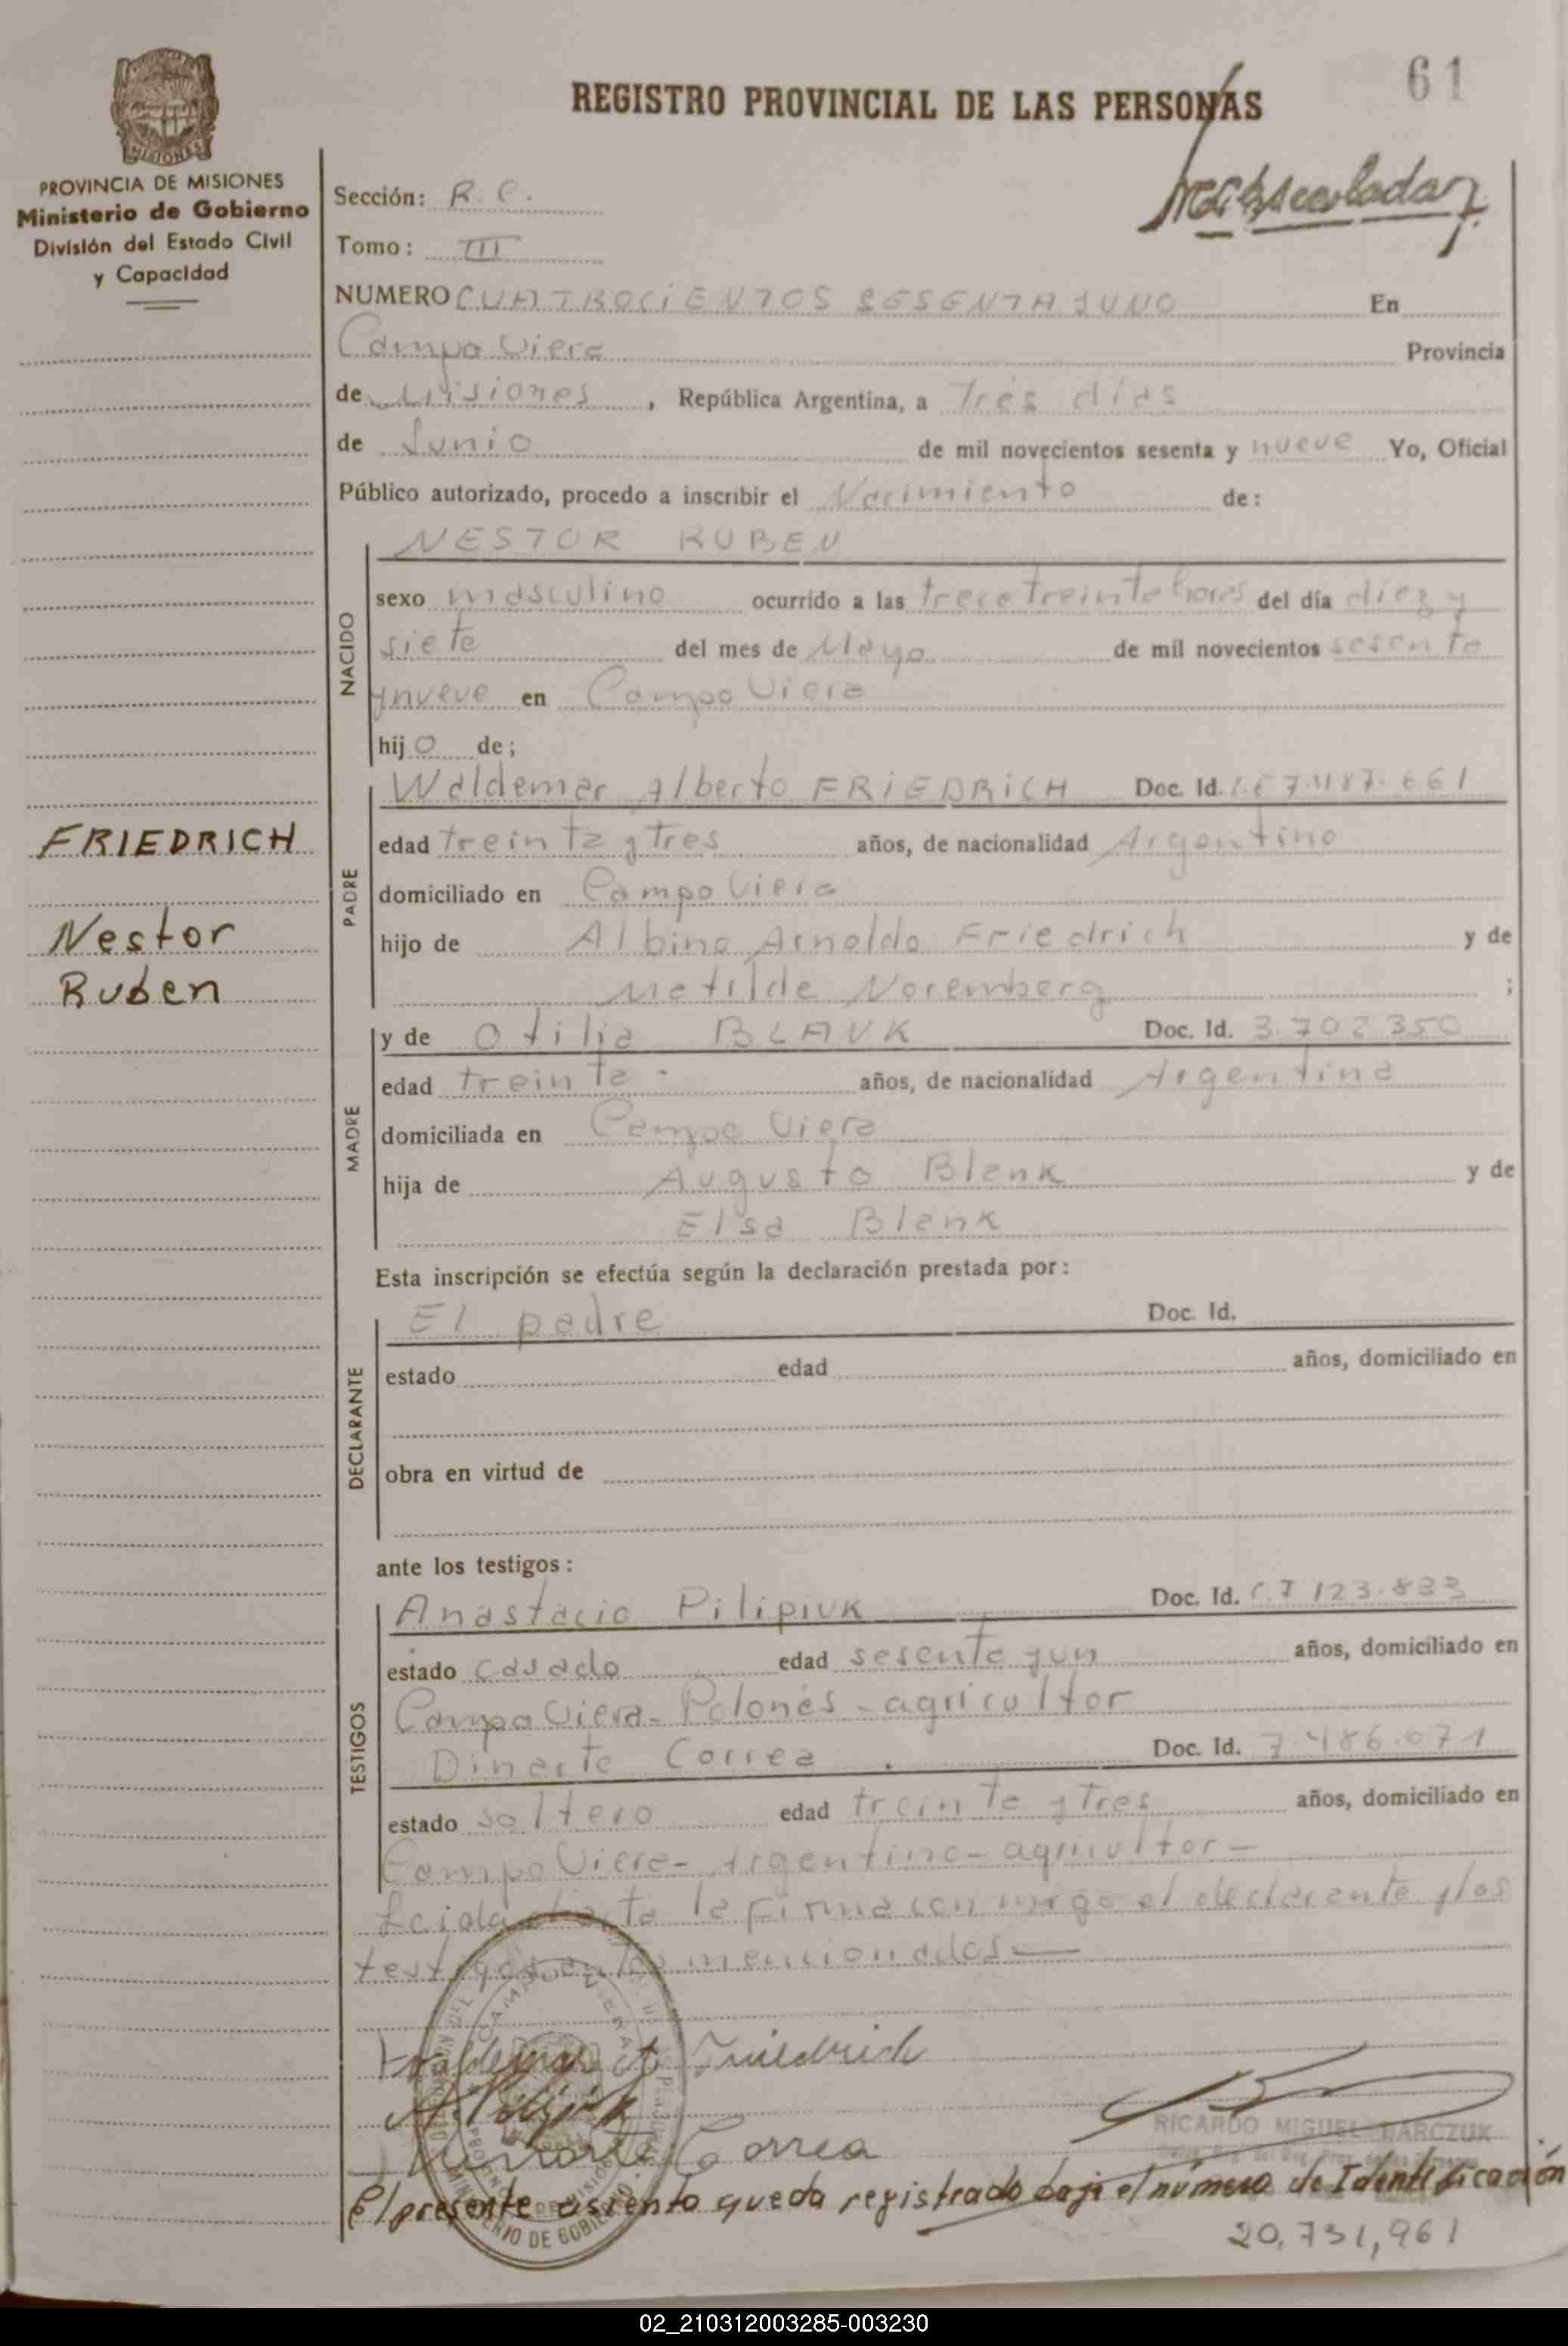 61
REGISTRO PROVINCIAL DE LAS PERSONAS
MISIONES
PROVINCIA DE MISIONES
Ministerio de Gobierno
División del Estado Civil
y Capacidad
Sección: R. C.
Tomo: III
NUMERO CUATROCIENTOS SESENTA YUNO En
Campo Viera Provincia
de Misiones, República Argentina, a Tres días
de Junio de mil novecientos sesenta y nueve Yo, Oficial
Público autorizado, procedo a inscribir el Nacimiento de:
NESTOR RUBEN
NACIDO
sexo masculino ocurrido a las trece treinta horas del día diez y
siete del mes de Mayo de mil novecientos sesenta
ynueve en Campo Viera
hijo de;
Waldemar Alberto FRIEDRICH Doc. Id.
FRIEDRICH
Nestor
Ruben
PADRE
edad treinta y tres años, de nacionalidad Argentino
domiciliado en Campo Viera
hijo de Albino Arnoldo Friedrich y de
Matilde Noremberg ;
y de Otilia BLANK Doc. Id. 3.702350
MADRE
edad treinta años, de nacionalidad Argentina
domiciliada en Campo Viera
hija de Augusto Blank y de
Elsa Blank
Esta inscripción se efectúa según la declaración prestada por:
El padre Doc. Id.
DECLARANTE
estado edad años, domiciliado en
obra en virtud de
ante los testigos:
Anastacio Pilipiuk Doc. Id. C.I 123.833
TESTIGOS
estado casado edad sesenta yun años, domiciliado en
Campo Viera - Polonés - agricultor
Dinarte Correa Doc. Id. 7.486.071
estado soltero edad treinta y tres años, domiciliado en
Campo Viera - Argentino - agricultor -
Leida el acta la firma con migo el declarante y los
testigos antes mencionados
Waldemar A Friedrich
A. Pilipiuk
Dinarte Correa
CAMPO VIERA
MINISTERIO DE GOBIERNO
RICARDO MIGUEL BARCZUK
El presente asiento queda registrado bajo el número de Identificación
20,731,961
02_210312003285-003230